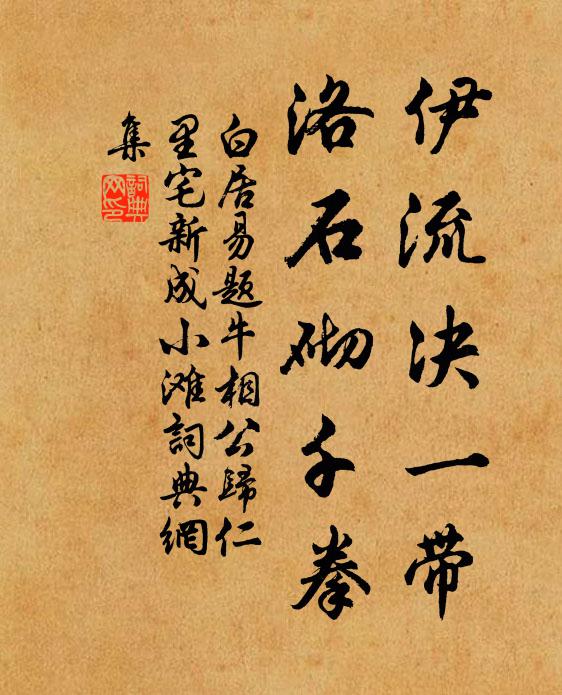 伊流决一带
洛石砌千拳
白居易题牛相公歸仁
里宅新成小滩詞典網
集
詞典
网印